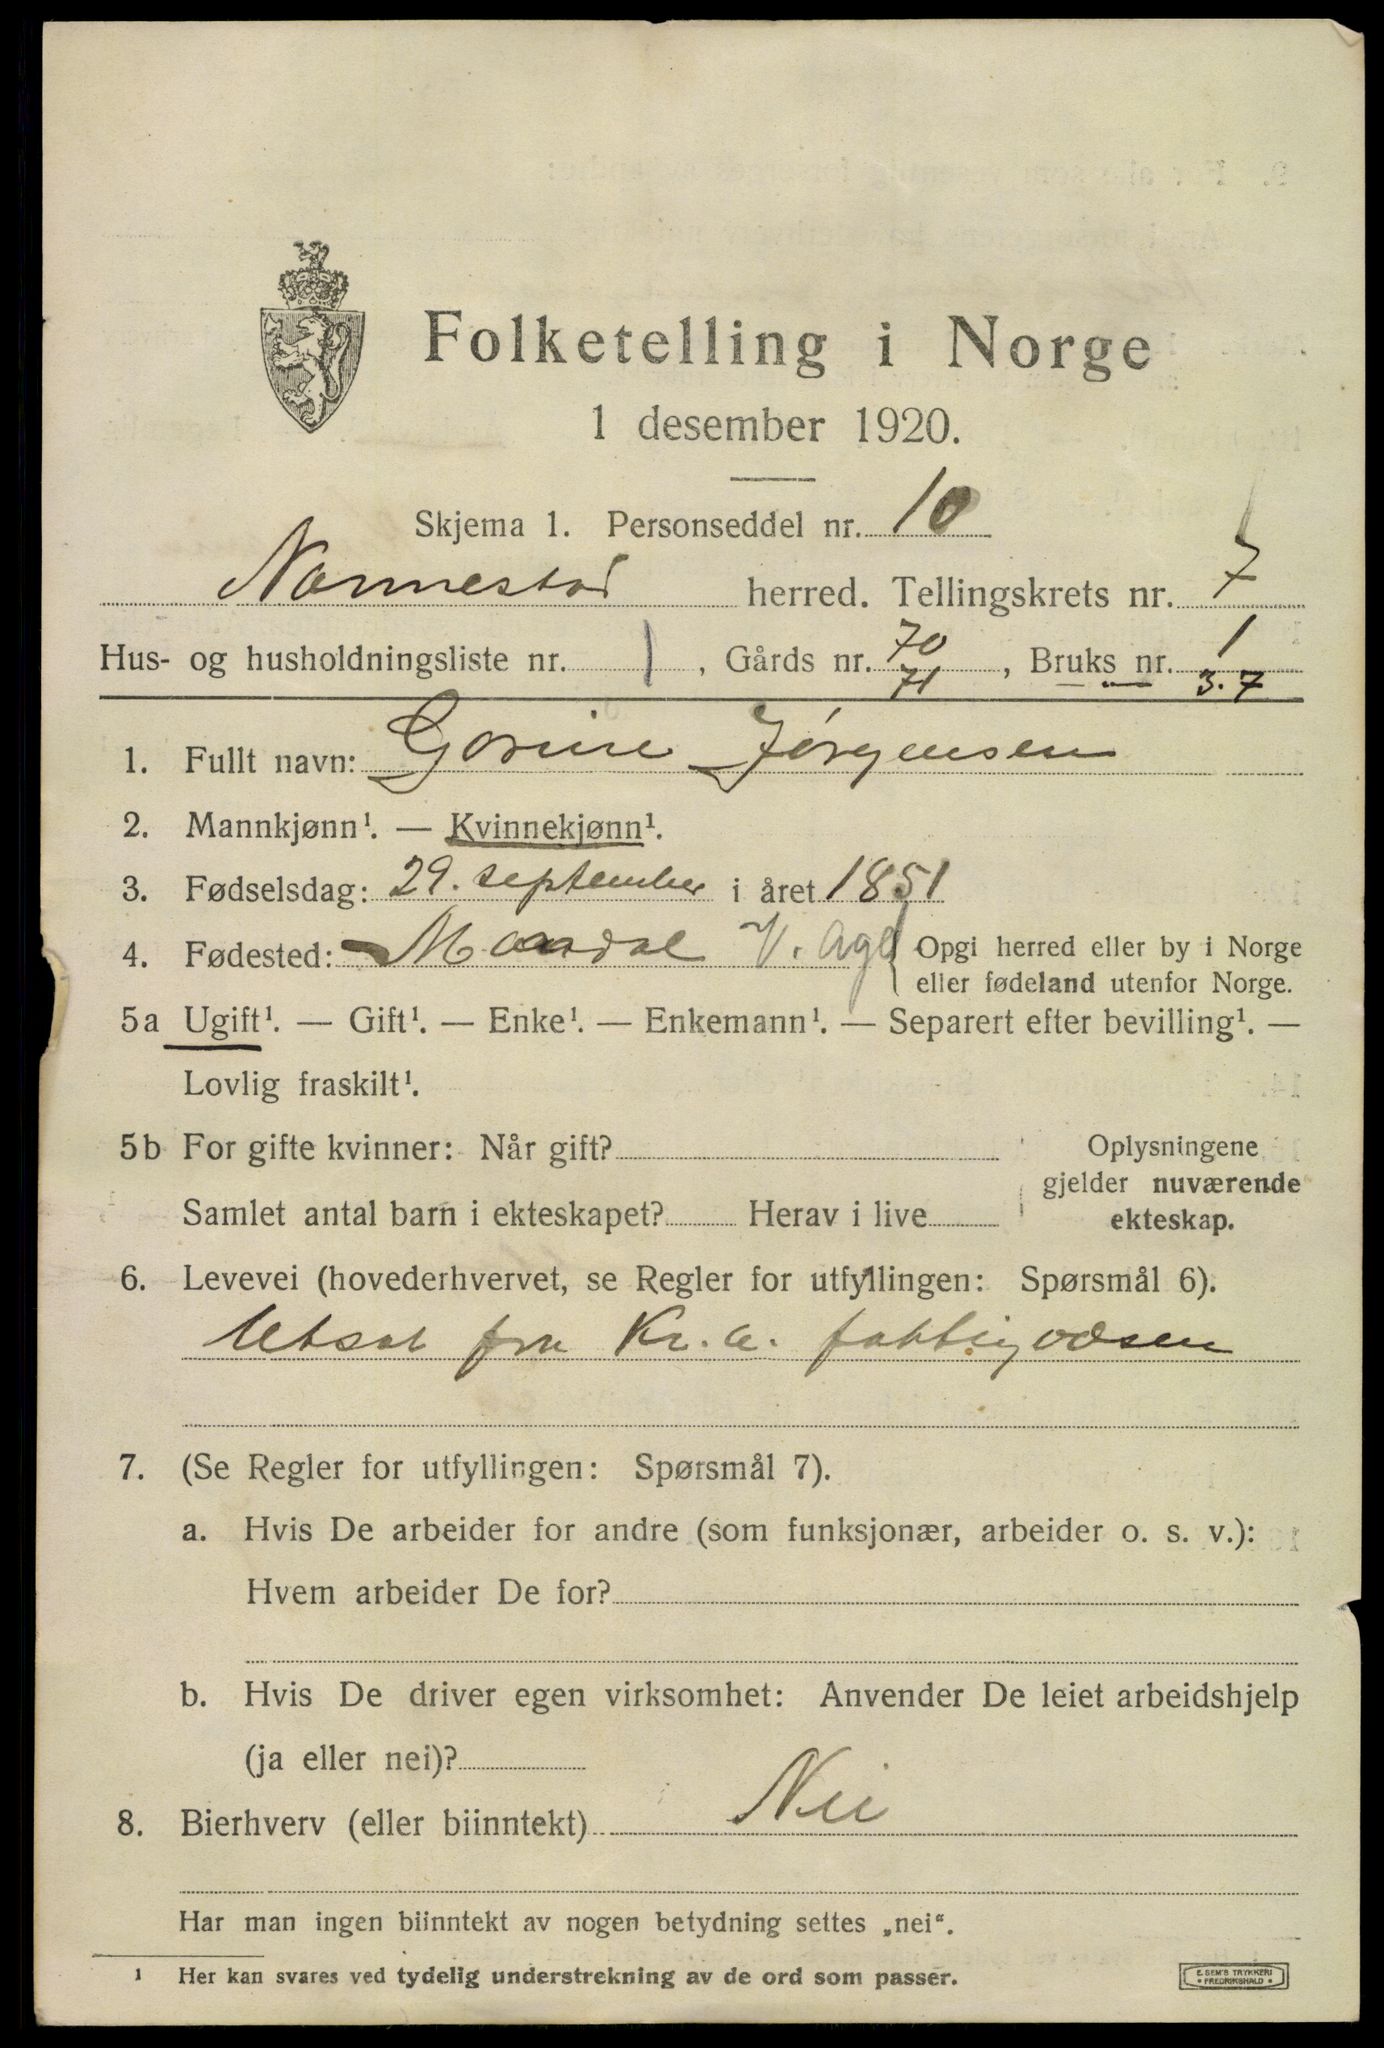 Folketelling i Norge
1 desember 1920.
Skjema 1. Personseddel nr. 10
Nannestad herred. Tellingskrets nr. 7
Hus- og husholdningsliste nr. 1, Gårds nr. 70 71, Bruks nr. 1 3.7
1. Fullt navn: Gorine Jørgensen
2. Mannkjønn¹. — Kvinnekjønn¹.
3. Fødselsdag: 29. september i året 1851
4. Fødested: Mandal V. Agd Opgi herred eller by i Norge
eller fødeland utenfor Norge.
5a Ugift¹. — Gift¹. — Enke¹. — Enkemann¹. — Separert efter bevilling¹. —
Lovlig fraskilt¹.
5b For gifte kvinner: Når gift? Oplysningene
gjelder nuværende
Samlet antal barn i ekteskapet? Herav i live
ekteskap.
6. Levevei (hovederhvervet, se Regler for utfyllingen: Spørsmål 6).
Utsat fra Kr.a. fattigvæsen
7. (Se Regler for utfyllingen: Spørsmål 7).
a. Hvis De arbeider for andre (som funksjonær, arbeider o. s. v.):
Hvem arbeider De for?
b. Hvis De driver egen virksomhet: Anvender De leiet arbeidshjelp
(ja eller nei)?
8. Bierhverv (eller biinntekt) Nei
Har man ingen biinntekt av nogen betydning settes „nei“.
¹ Her kan svares ved tydelig understrekning av de ord som passer.
E. SEM'S TRYKKERI
FREDRIKSHALD